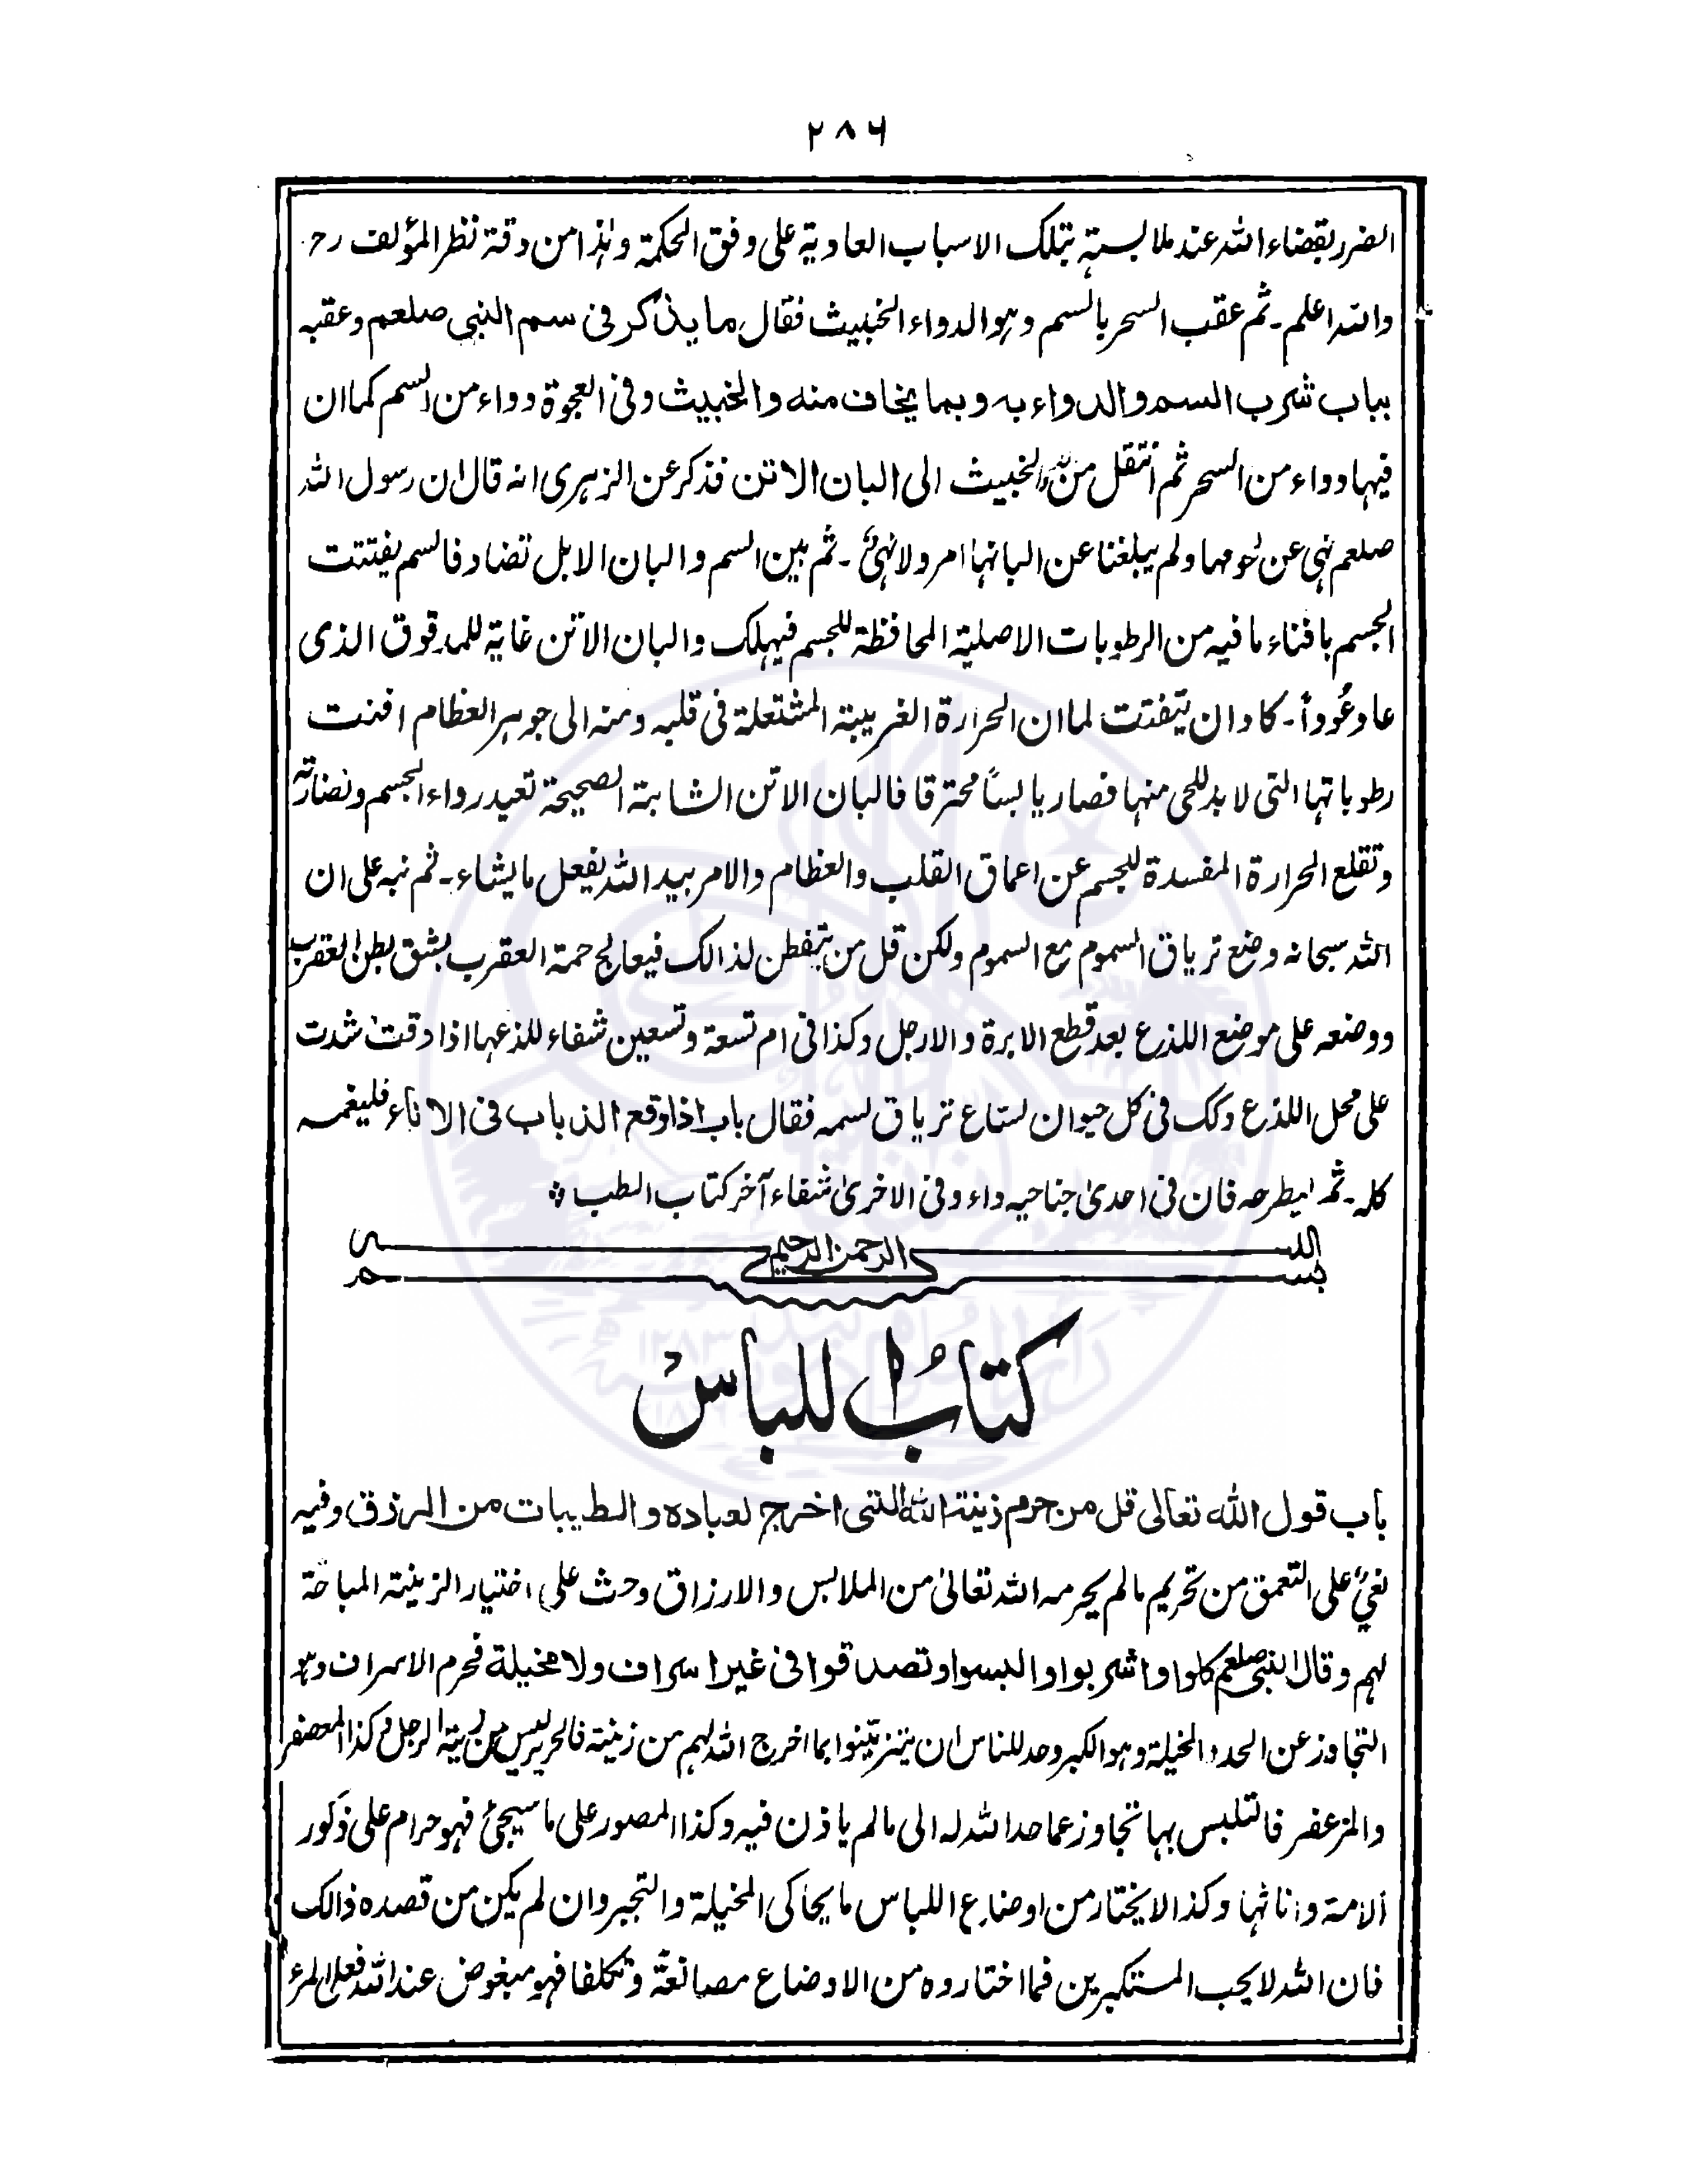 ٢٨٦
الضرر بقضاء الله عند ملابسته بتلك الاسباب العادية على وفق الحكمة وهذا من دقة نظر المؤلف رح
والله اعلم۔ ثم عقب السحر بالسم وهو الدواء الخبيث فقال ما يذكر فى سم النبى صلعم وعقبه
بباب شرب السم والدواء به وبما يخاف منه والخبيث وفى العجوة دواء من السم كما ان
فيها دواء من السحر ثم انتقل من الخبيث الى البان الاتن فذكر عن الزهرى انه قال ان رسول الله
صلعم نهى عن لحومها ولم يبلغنا عن البانها امر ولا نهى۔ ثم بين السم والبان الابل تضاد فالسم يفتتت
الجسم بافناء ما فيه من الرطوبات الاصلية المحافظة للجسم فيهلك والبان الاتن غاية للمدقوق الذى
عاد عُوداً۔ كاد ان يتفتت لما ان الحرارة الغريبة المشتعلة فى قلبه ومنه الى جوهر العظام افنت
رطوباتها التى لا بد للحى منها فصار يابساً محترقا فالبان الاتن الشابة الصحيحة تعيد رواء الجسم ونضارته
وتقلع الحرارة المفسدة للجسم عن اعماق القلب والعظام والامر بيد الله يفعل ما يشاء۔ ثم نبه على ان
الله سبحانه وضع ترياق السموم مع السموم ولكن قل من يتفطن لذالك فيعالج حمة العقرب بشق بطن العقرب
ووضعه على موضع اللذع بعد قطع الابرة والارجل وكذا فى ام تسعة وتسعين شفاء للذعها اذا دقت شدت
على محل اللذع وكك فى كل حيوان لساع ترياق لسمه فقال باب اذا وقع الذباب فى الاناء فليغمسه
كله۔ ثم ليطرحه فان فى احدىٰ جناحيه داء وفى الاخرىٰ شفاء آخر كتاب الطب ؞
بسم الله الرحمن الرحيم
كتابُ اللباسْ
باب قول الله تعالى قل من حرم زينة الله التى اخرج لعباده والطيبات من الرزق وفيه
نعيٌ على التعمق من تحريم ما لم يحرمه الله تعالىٰ من الملابس والارزاق وحث على اختيار الزينة المباحة
لهم وقال النبى صلعم كلوا واشربوا والبسوا وتصدقوا فى غير اسراف ولا مخيلة فحرم الاسراف وهو
التجاوز عن الحد والمخيلة وهو الكبر وحد للناس ان يتزينوا بما اخرج الله لهم من زينة فالحرير ليس من زينة الرجل وكذا المعصفر
والمزعفر فالتلبس بها تجاوز عما حد الله له الى ما لم ياذن فيه وكذا المصور على ما سيجئ فهو حرام على ذكور
الامة واناثها وكذا لا يختار من اوضاع اللباس ما يحاكى المخيلة والتجبر وان لم يكن من قصده ذالك
فان الله لا يحب المستكبرين فما اختاروه من الاوضاع مصانعة وتكلفا فهو مبغوض عند الله فعلى المرء